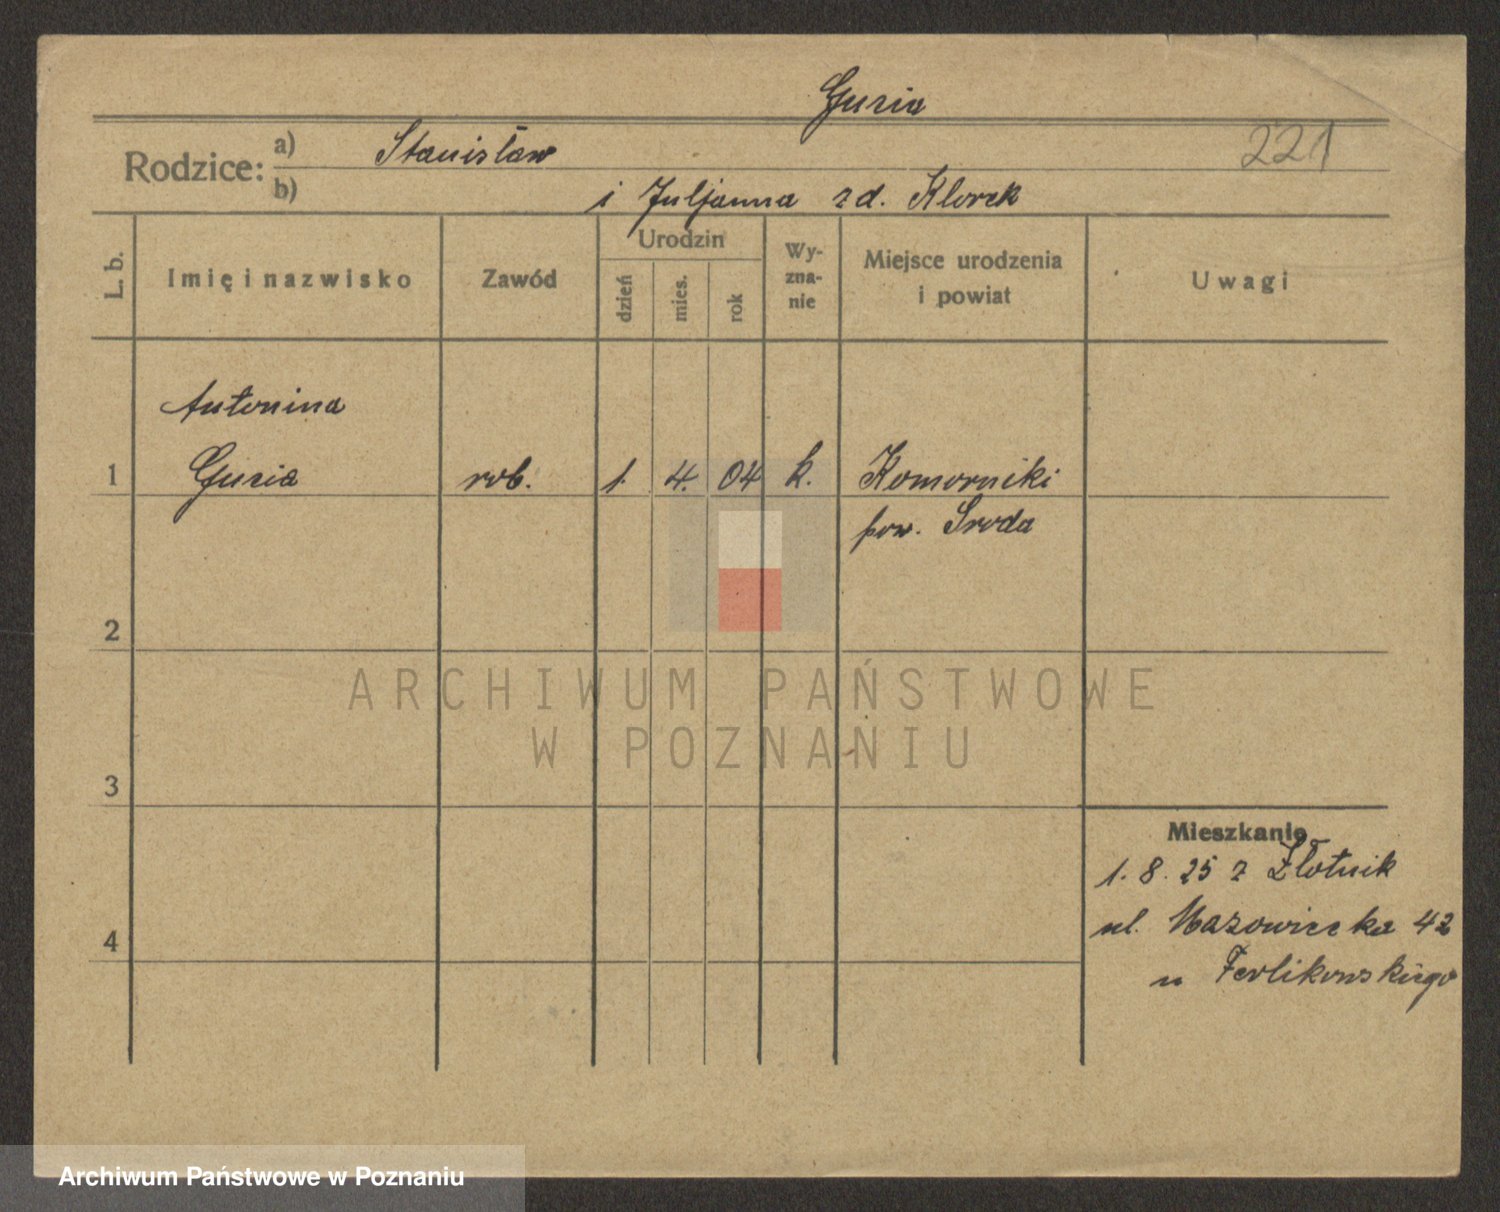 Guzia
Rodzice: a) Stanisław
221
b) i Juljanna zd. Klorek
L. b.
Imię i nazwisko
Zawód
Urodzin
dzień
mies.
rok
Wy-
zna-
nie
Miejsce urodzenia
i powiat
Uwagi
Antonina
1 Guzia rob. 1. 4. 04 k. Komorniki
pow. Sroda
2
ARCHIWUM PAŃSTWOWE
W POZNANIU
3
Mieszkanie
1. 8. 25 z Złotnik
ul. Mazowiecka 42
4
u Ferlikowskiego
Archiwum Państwowe w Poznaniu